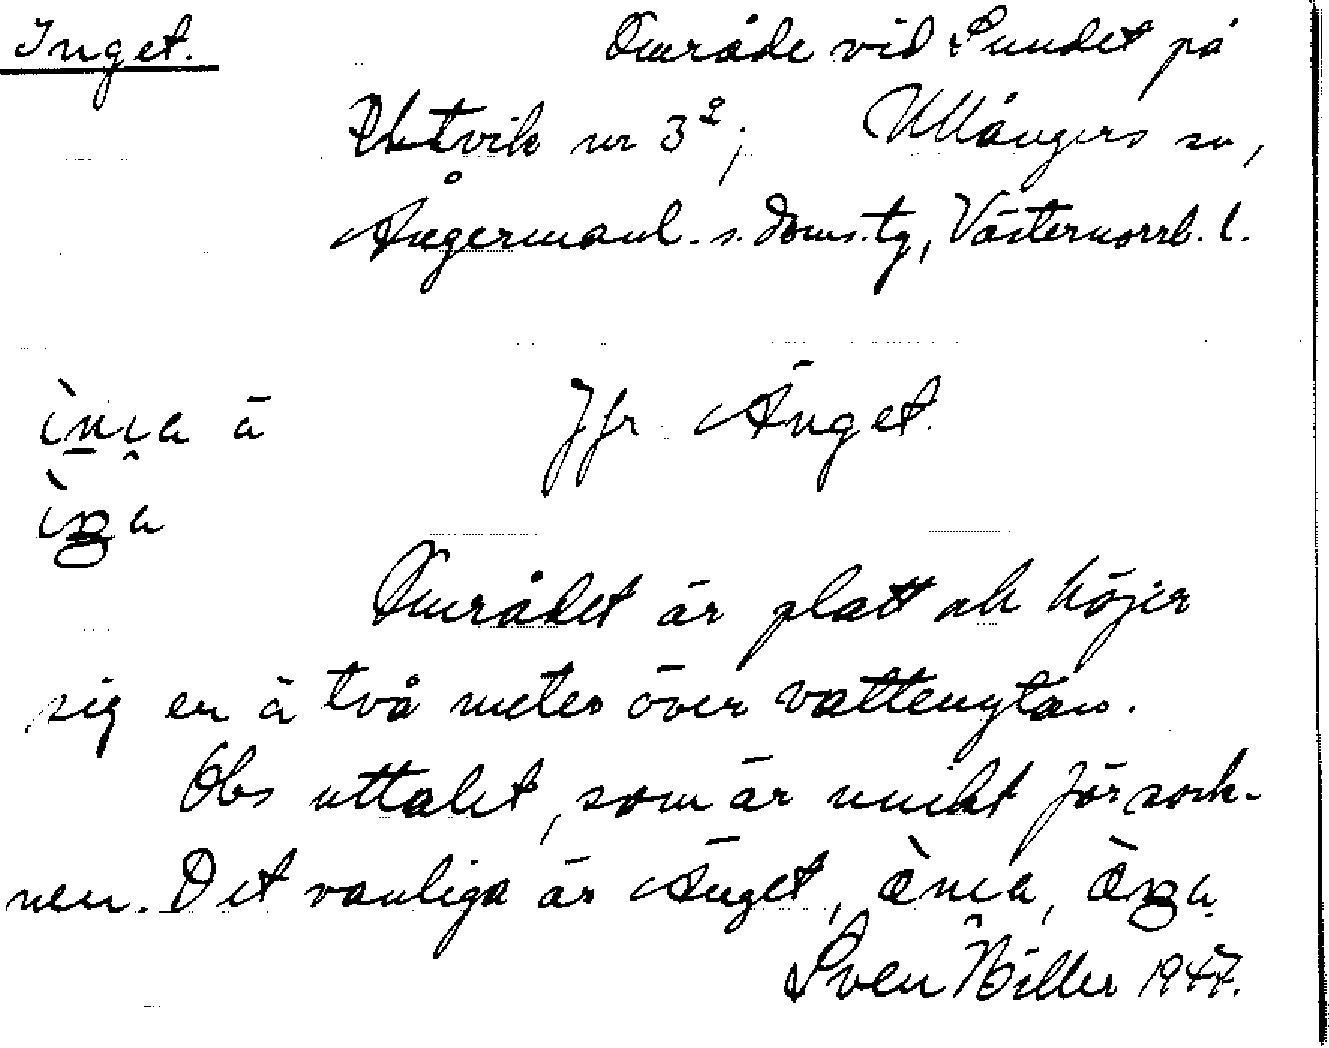 Inget. Område vid Sundet på
Utvik nr 3²; Ullångers sn,
Ångermanl. s. doms.tg, Västernorrl. l.
Jfr Änget.
Området är platt och höjer
sig en à två meter över vattenytan.
Obs uttalet, som är unikt för sock-
nen. Det vanliga är Änget,
Sven Hiller 1947.